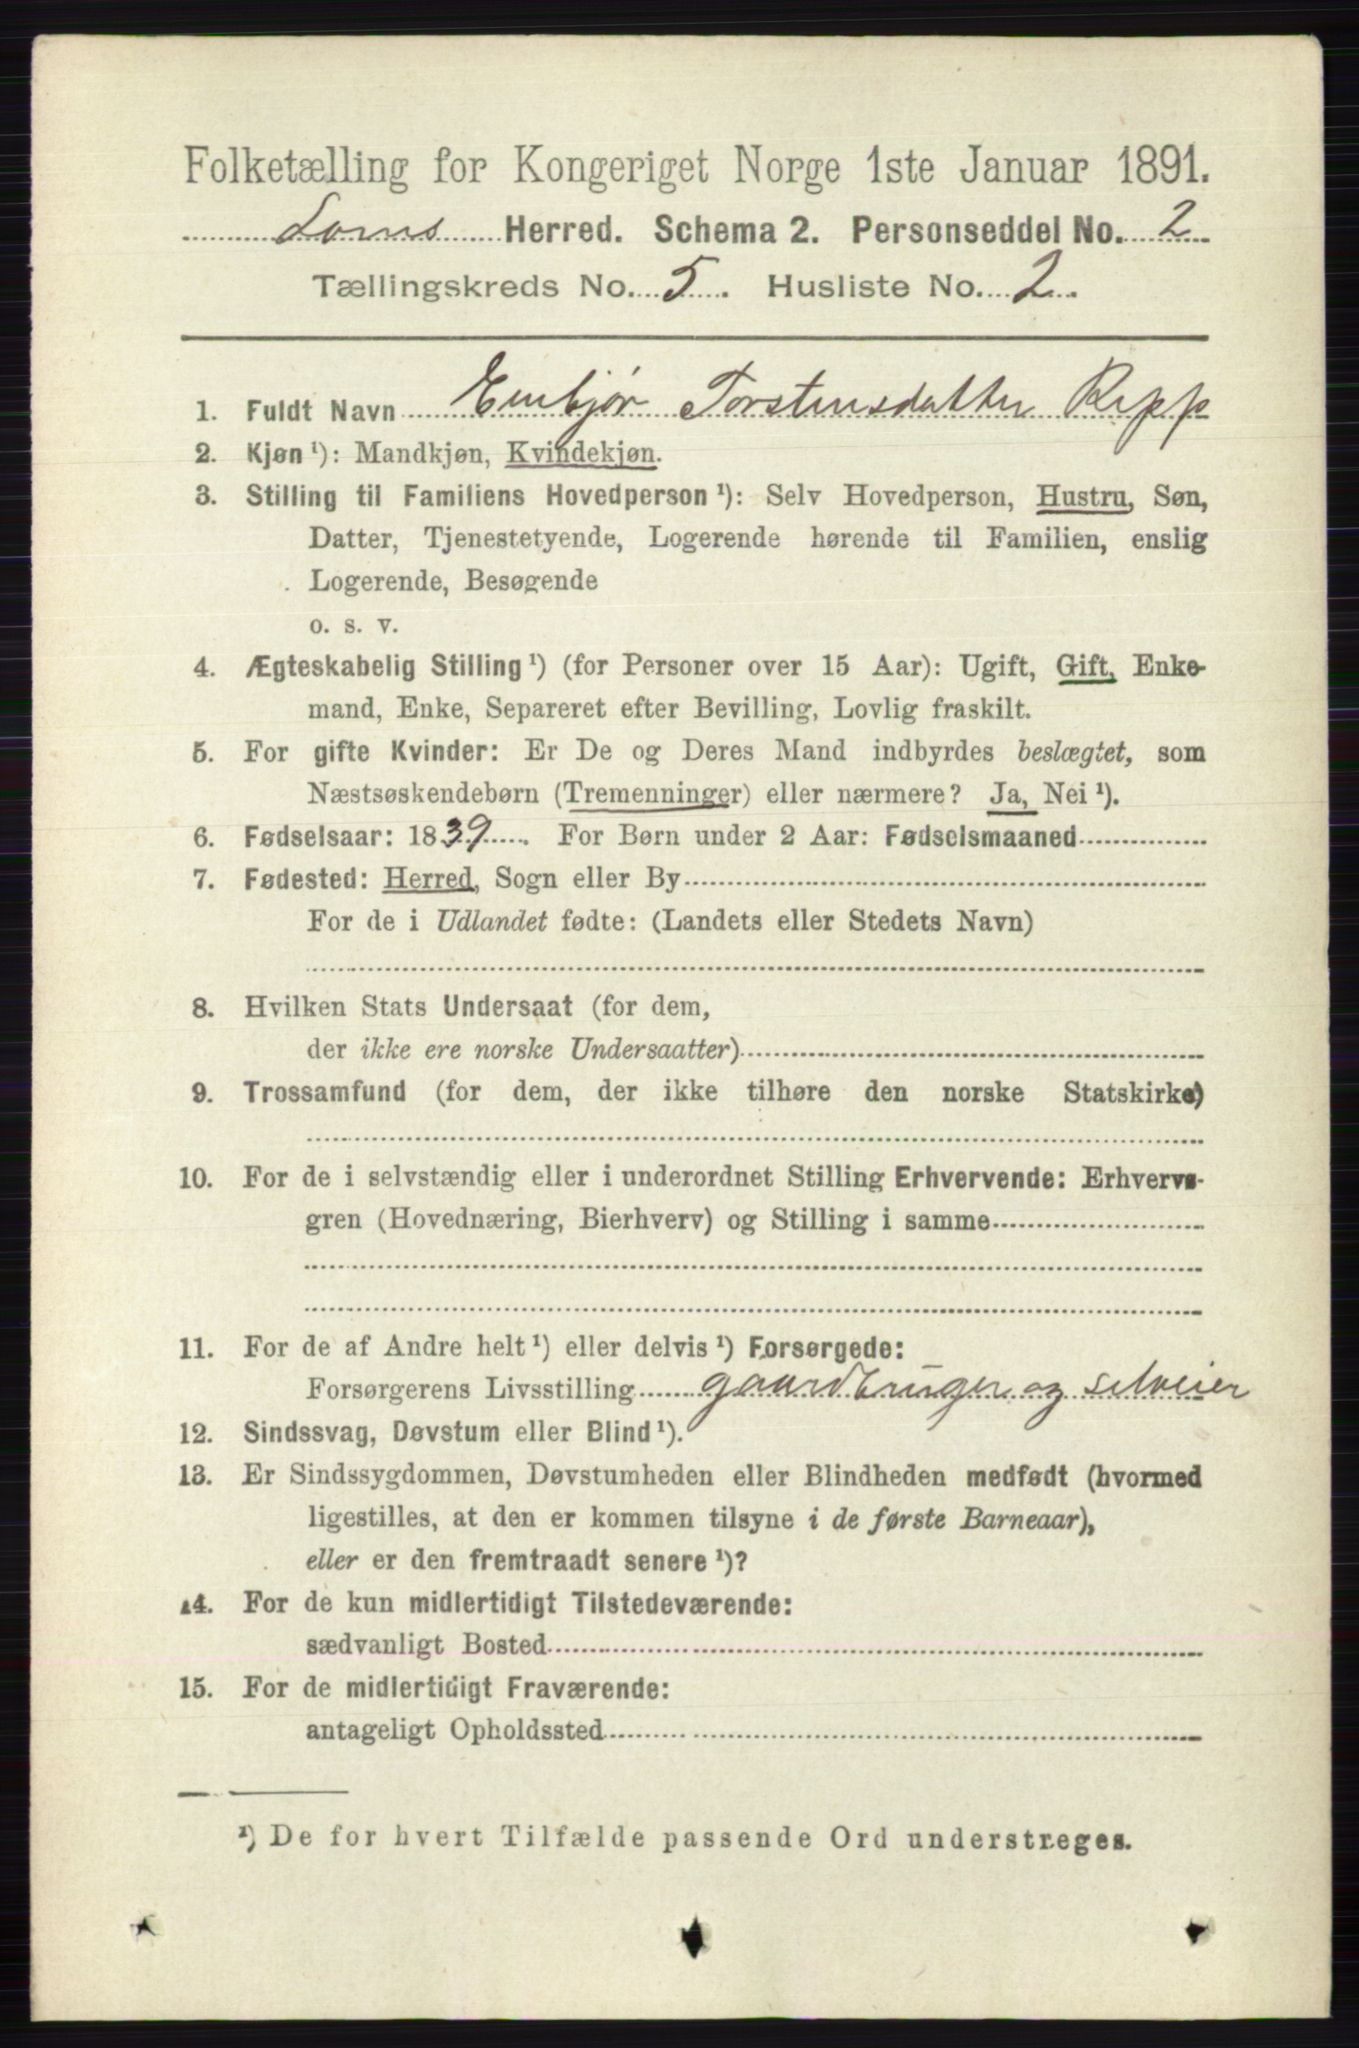 Folketælling for Kongeriget Norge 1ste Januar 1891.
Loms Herred. Schema 2. Personseddel No. 2
Tællingskreds No. 5. Husliste No. 2.
1. Fuldt Navn Embjør Torstensdatter Repp
2. Kjøn ¹): Mandkjøn, Kvindekjøn.
3. Stilling til Familiens Hovedperson ¹): Selv Hovedperson, Hustru, Søn,
Datter, Tjenestetyende, Logerende hørende til Familien, enslig
Logerende, Besøgende
o. s. v.
4. Ægteskabelig Stilling ¹) (for Personer over 15 Aar): Ugift, Gift, Enke-
mand, Enke, Separeret efter Bevilling, Lovlig fraskilt.
5. For gifte Kvinder: Er De og Deres Mand indbyrdes beslægtet, som
Næstsøskendebørn (Tremenninger) eller nærmere? Ja, Nei ¹).
6. Fødselsaar: 1839. For Børn under 2 Aar: Fødselsmaaned
7. Fødested: Herred, Sogn eller By
For de i Udlandet fødte: (Landets eller Stedets Navn)
8. Hvilken Stats Undersaat (for dem,
der ikke ere norske Undersaatter)
9. Trossamfund (for dem, der ikke tilhøre den norske Statskirke)
10. For de i selvstændig eller i underordnet Stilling Erhvervende: Erhvervs-
gren (Hovednæring, Bierhverv) og Stilling i samme
11. For de af Andre helt ¹) eller delvis ¹) Forsørgede:
Forsørgerens Livsstilling gaardbruger og selveier
12. Sindssvag, Døvstum eller Blind ¹).
13. Er Sindssygdommen, Døvstumheden eller Blindheden medfødt (hvormed
ligestilles, at den er kommen tilsyne i de første Barneaar),
eller er den fremtraadt senere ¹)?
14. For de kun midlertidigt Tilstedeværende:
sædvanligt Bosted
15. For de midlertidigt Fraværende:
antageligt Opholdssted
¹) De for hvert Tilfælde passende Ord understreges.